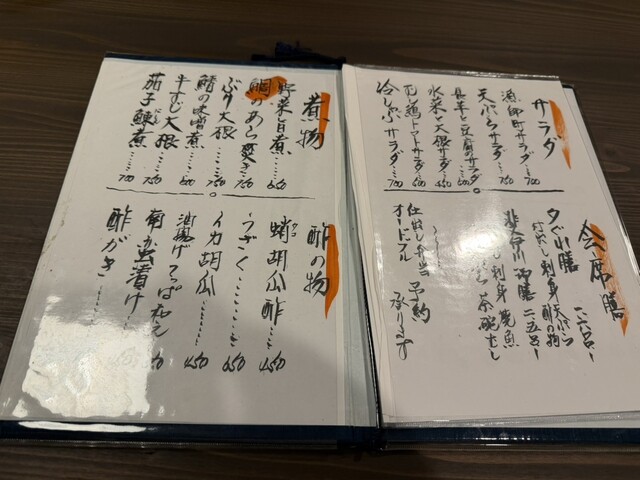 サラダ
漁師町サラダ…700
天ぷらサラダ…750
長芋と豆腐のサラダ…600
水菜と大根サラダ…450
むし鶏トマトサラダ…600
冷しゃぶサラダ…700
会席膳
夕ぐれ膳
刺身 天ぷら
酢の物
御膳 二、五〇〇ー
刺身 焼魚
茶碗むし
仕出し弁当
オードブル
予約
承ります
煮物
野菜旨煮……650
鯛のあら焚き…750
ぶり大根……750
鱈の味噌煮……600
牛すじ大根……750
茄子鰊煮……700
酢の物
蛸胡瓜酢……450
うざく……650
イカ胡瓜……450
油揚げ
てっぱ和え
漬け……
酢がき……